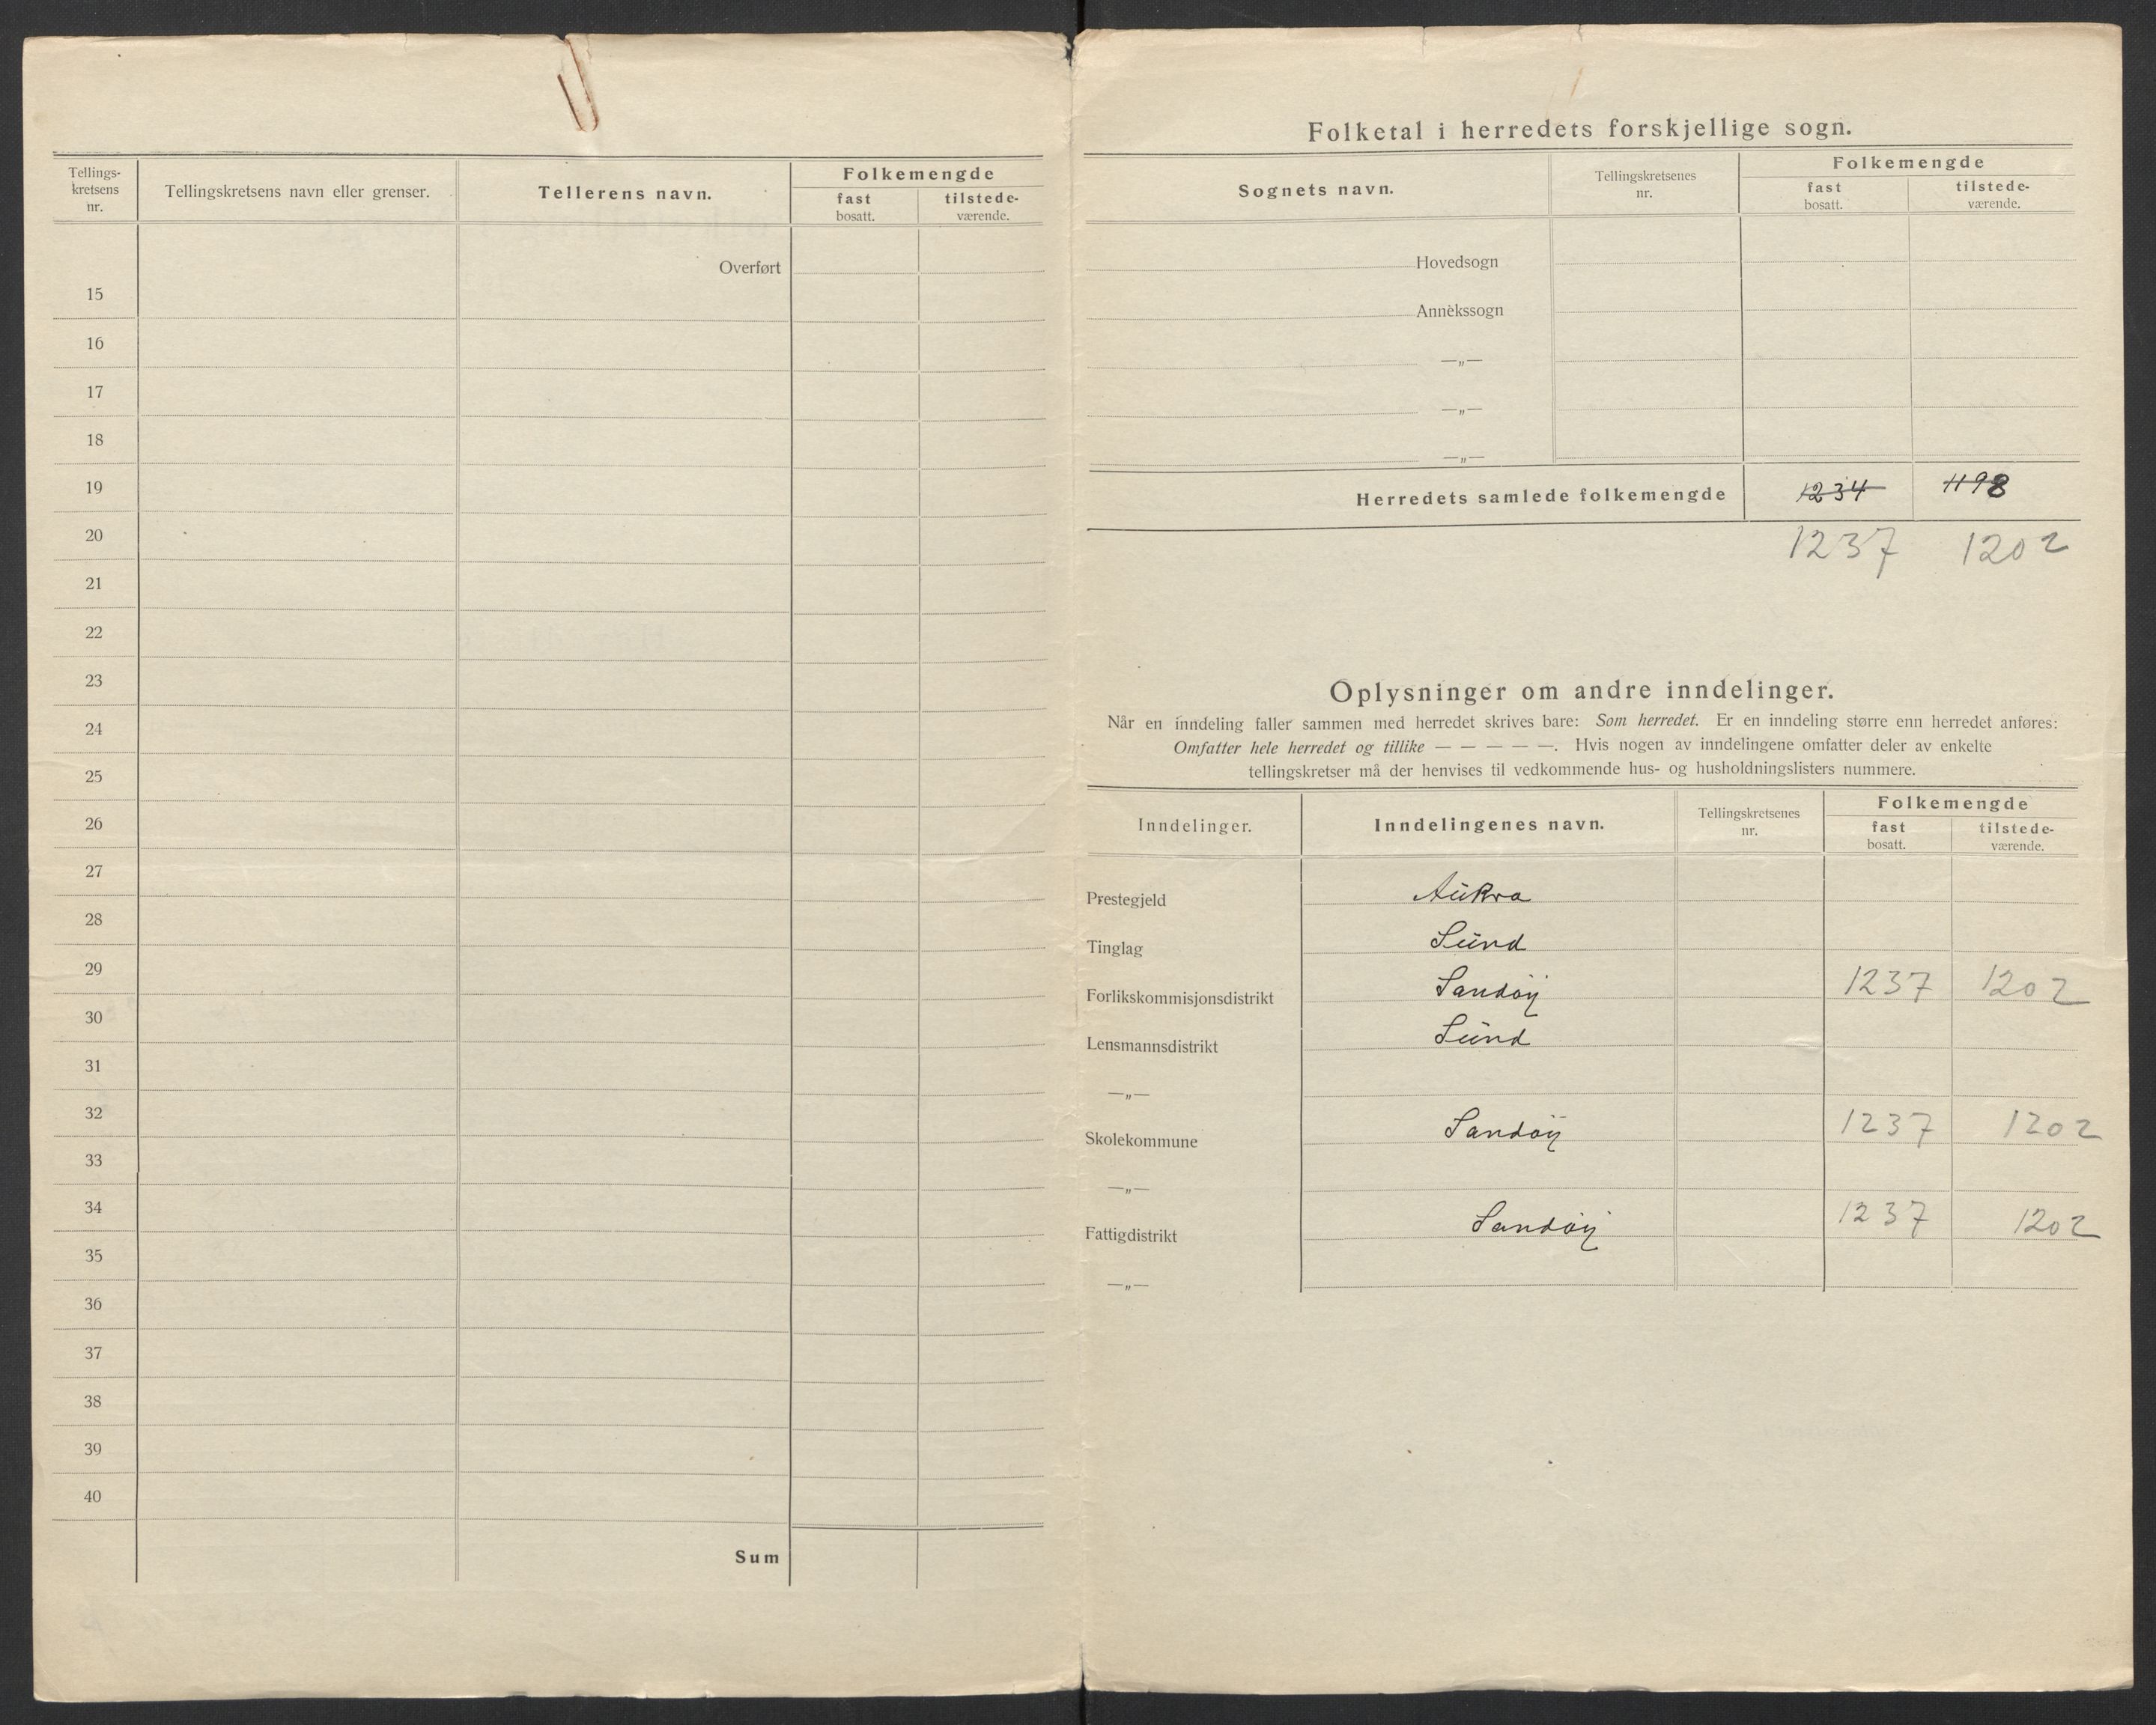 Tellings-
kretsens
nr.
Tellingskretsens navn eller grenser.
Tellerens navn.
Folkemengde
fast
bosatt.
tilstede-
værende.
Overført
15
16
17
18
19
20
21
22
23
24
25
26
27
28
29
30
31
32
33
34
35
36
37
38
39
40
Sum
Folketal i herredets forskjellige sogn.
Sognets navn.
Tellingskretsenes
nr.
Folkemengde
fast
bosatt.
tilstede-
værende.
Hovedsogn
Annekssogn
—„—
—„—
—„—
Herredets samlede folkemengde 1234 1198
1237 1202
Oplysninger om andre inndelinger.
Når en inndeling faller sammen med herredet skrives bare: Som herredet. Er en inndeling større enn herredet anføres:
Omfatter hele herredet og tillike — — — — —. Hvis nogen av inndelingene omfatter deler av enkelte
tellingskretser må der henvises til vedkommende hus- og husholdningslisters nummere.
Inndelinger.
Inndelingenes navn.
Tellingskretsenes
nr.
Folkemengde
fast
bosatt.
tilstede-
værende.
Prestegjeld Aukra
Tinglag Sund
Forlikskommisjonsdistrikt Sandøy 1237 1202
Lensmannsdistrikt Sund
—„—
Skolekommune Sandøy 1237 1202
—„—
Fattigdistrikt Sandøy 1237 1202
—„—